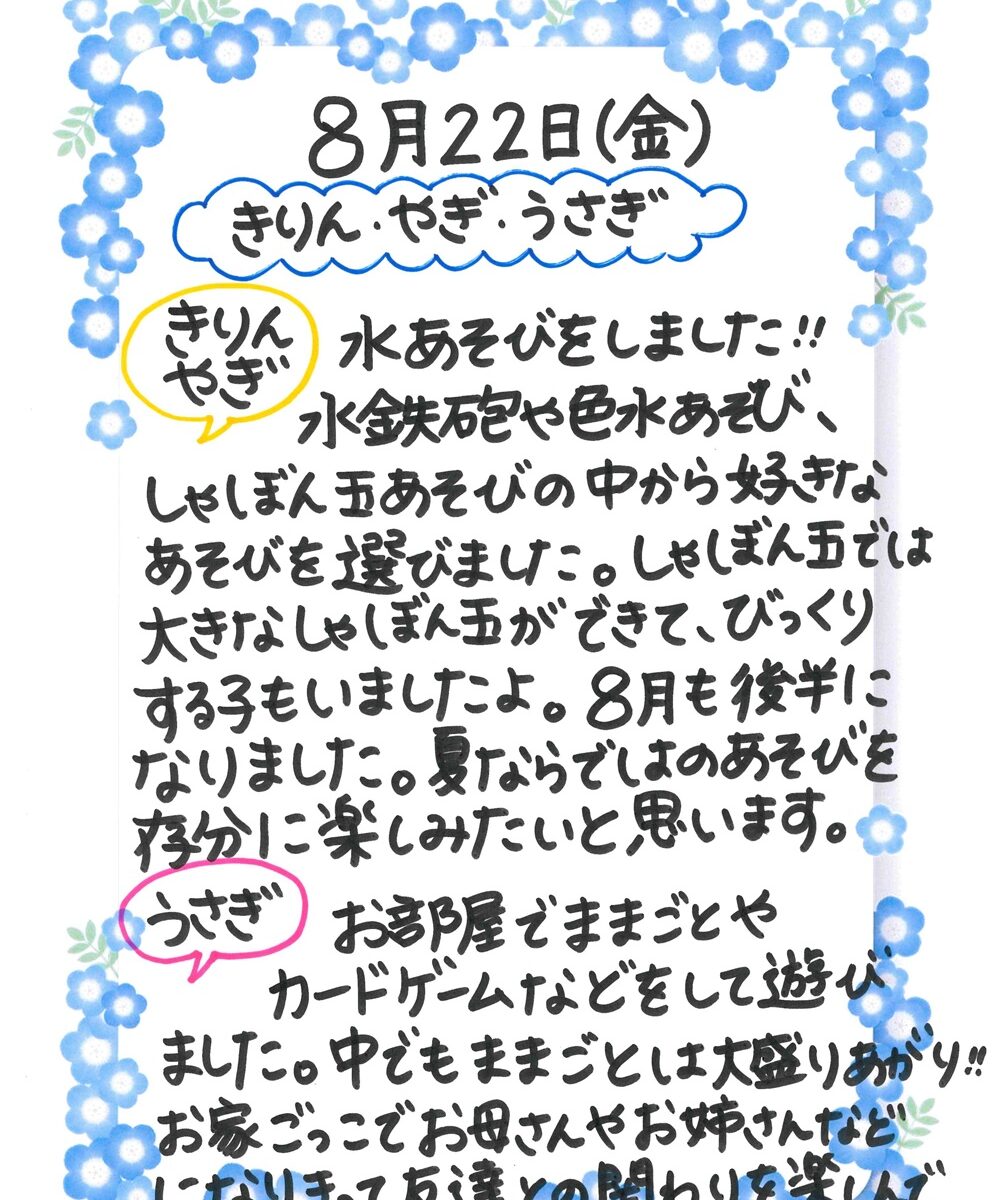 8月22日(金)
きりん・やぎ・うさぎ
きりん
やぎ
水あそびをしました!!
水鉄砲や色水あそび、
しゃぼん玉あそびの中から好きな
あそびを選びました。しゃぼん玉では
大きなしゃぼん玉ができて、びっくり
する子もいましたよ。8月も後半に
なりました。夏ならではのあそびを
存分に楽しみたいと思います。
うさぎ
お部屋でままごとや
カードゲームなどをして遊び
ました。中でもままごとは大盛りあがり!!
お家ごっこでお母さんやお姉さんなど
になりきって友達との関わりを楽しんで